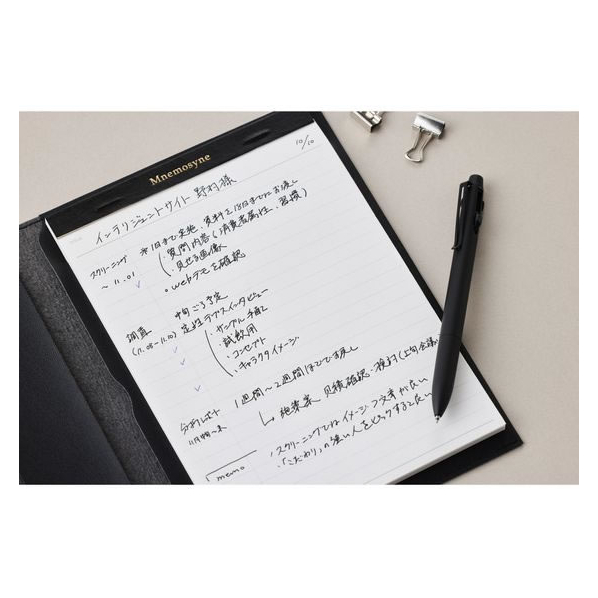 Mnemosyne
10/10
インテリジェントサイト 野村様
スクリーニング
～11.01
※1日まで実施、資料を18日までにお渡し
・質問内容(消費者属性、習慣)
・見せる画像
・webデモを確認
調査
(11.05-11.10)
中旬ごろ予定
定性デプスインタビュー
・サンプル手配
・試飲用
・コンセプト
・キャラクタイメージ
分析レポート
1週間～2週間ほどでお戻し
↳ 見積確認・検討
memo
・スクリーニングではイメージつ文章が良い
・「こだわり」の強い人をピックすること